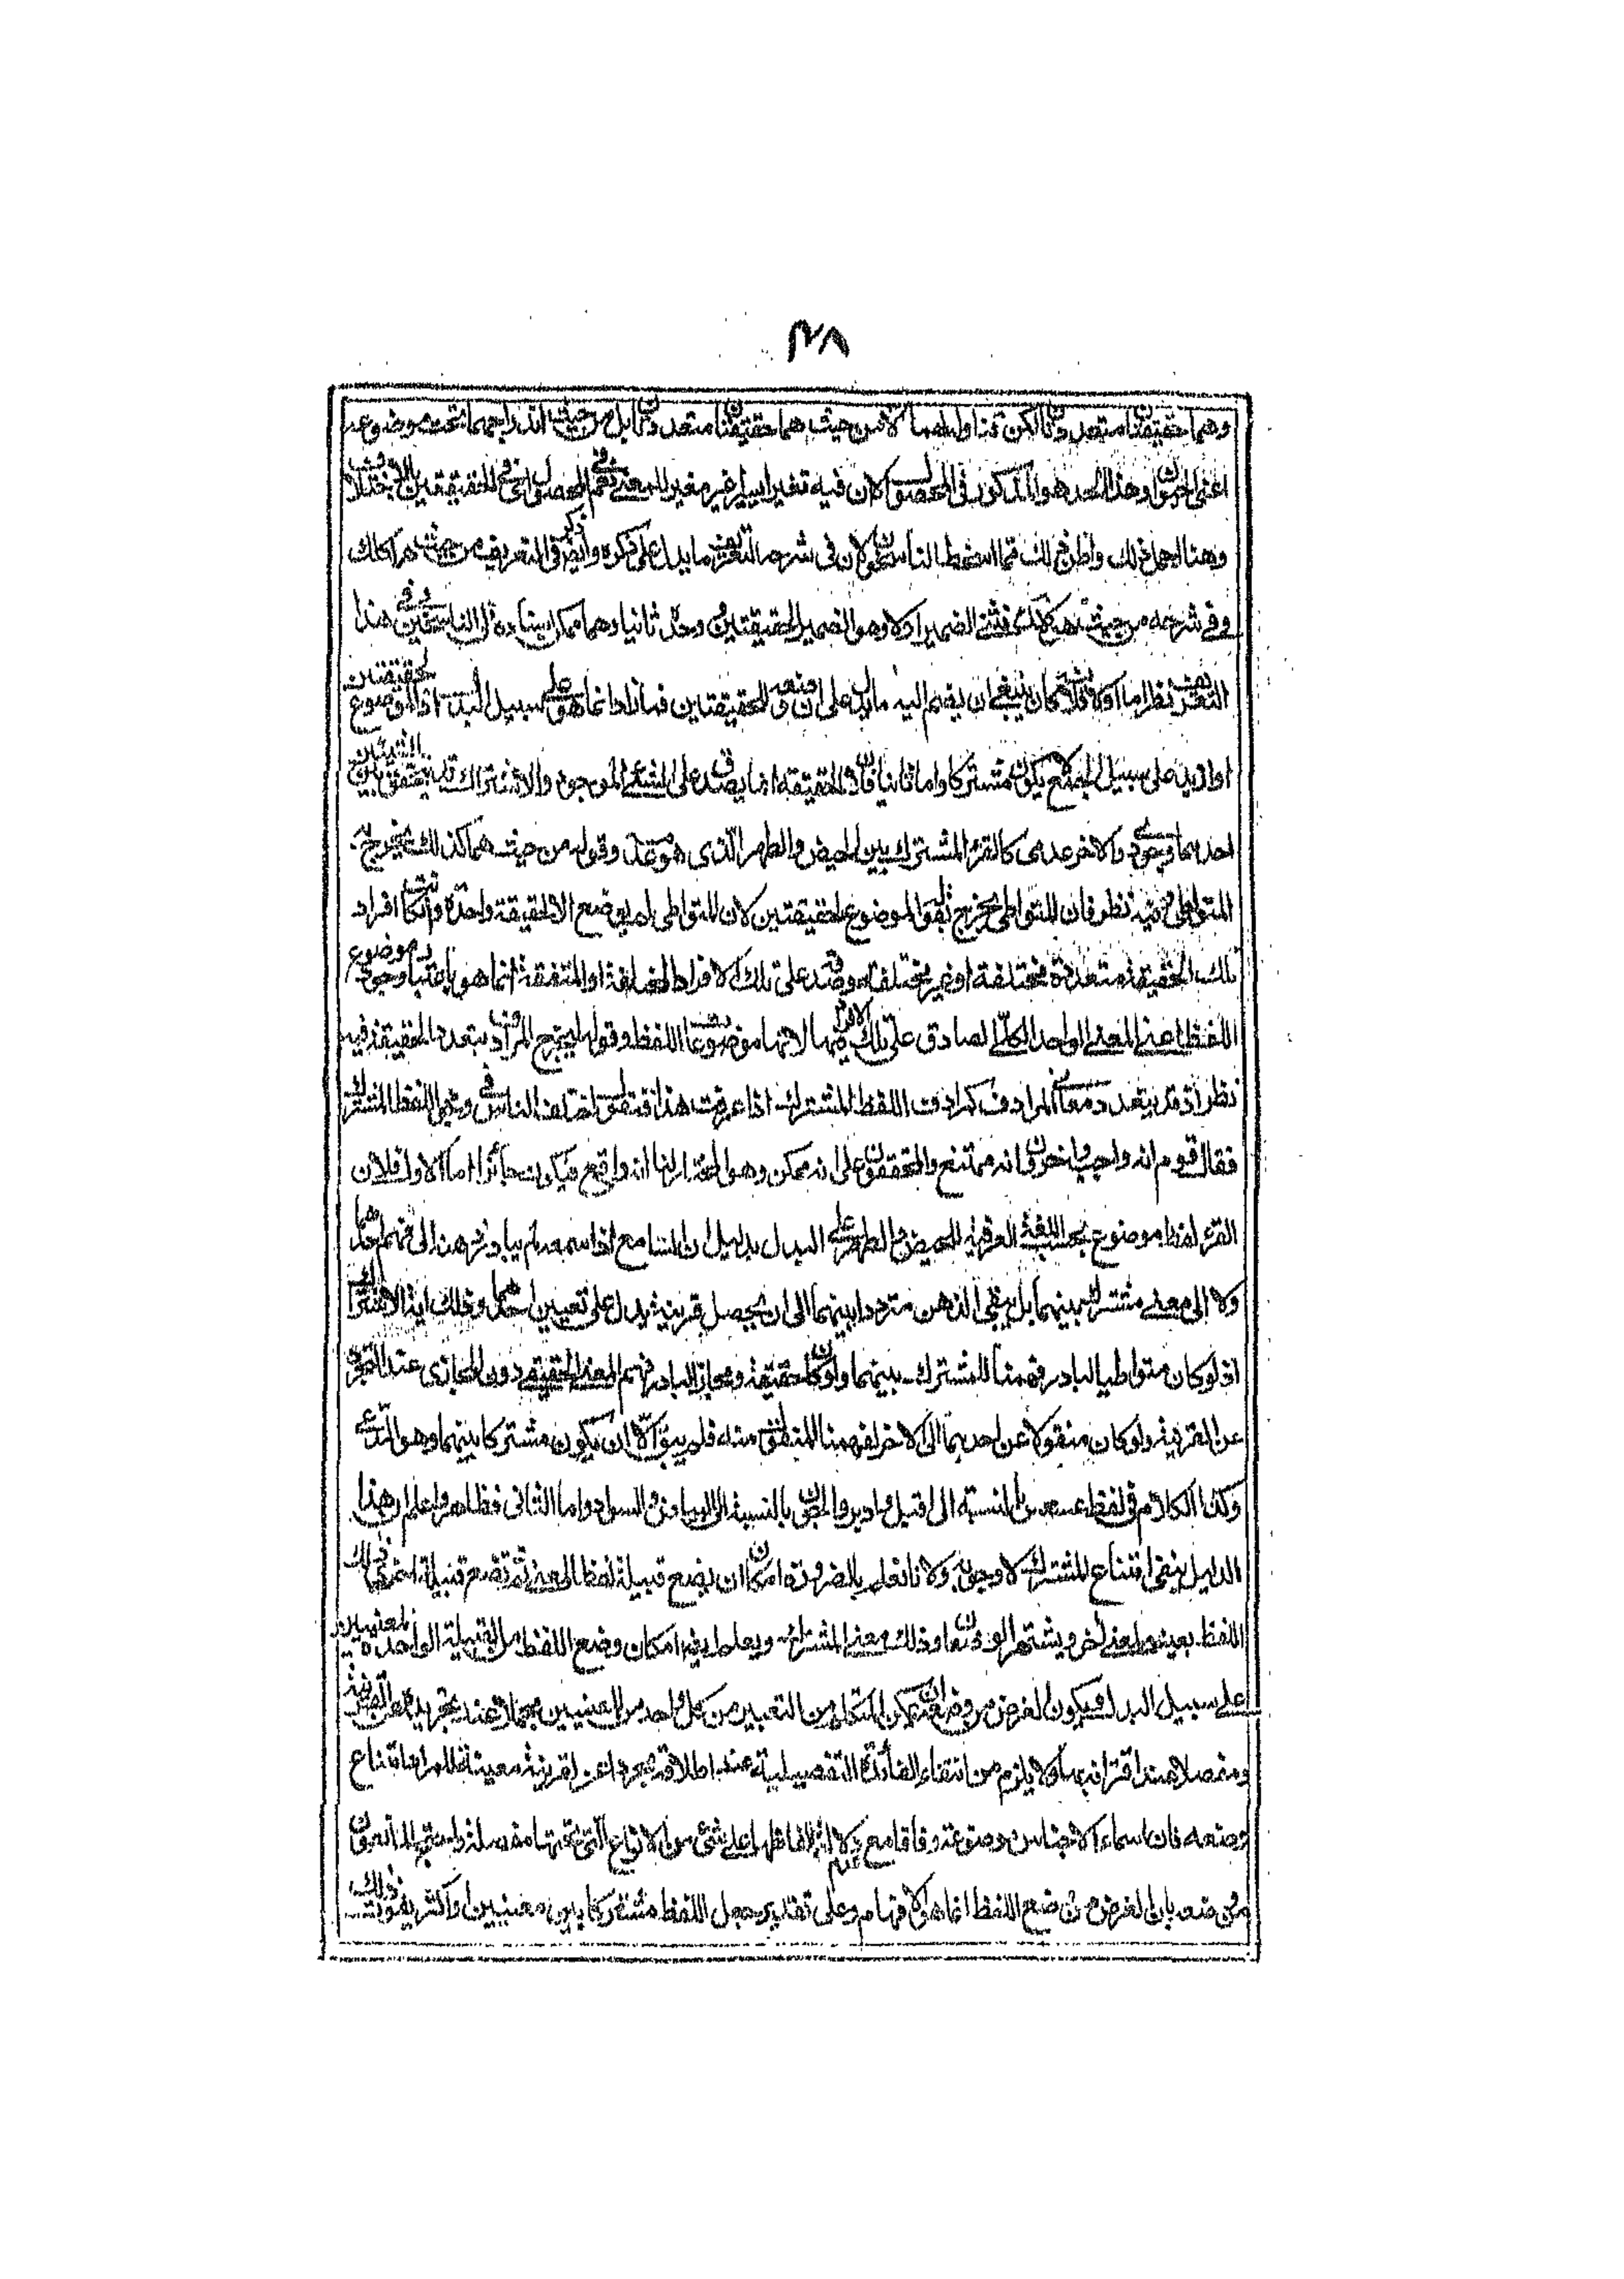 ٢٨
وهما حقيقتان متعددتان لكن تناوله لهما لا من حيث هما حقيقتان متعددتان بل من حيث اندراجهما تحت موضوعه
اعنى الحيوان وهذا الحد هو المذكور فى المحصول الا ان فيه تغييرا يسيرا غير مغير للمعنى فى المحصول للحقيقتين المختلفتين
وهنا اهمل ذلك واظن ذلك مما اسقطه الناسخون لان فى شرحه التعريف ما يدل على ذكره وايضا ذكر فى التعريف من حيث هما كذلك
وفى شرحه من حيث هى كذلك فثنى الضمير اولا وهو الضمير للحقيقتين ووحده ثانيا وهما ممكن اسناده الى الناسخين وفى هذا
التعريف نظر اما اولا فلانه كان ينبغى ان يضم اليه ما يدل على ان وضعه للحقيقتين فما زاد انما هو على سبيل البدل اذ الموضوع لحقيقتين
او ازيد على سبيل الجمع لا يكون مشتركا واما ثانيا فلان الحقيقة انما يصدق على الشئ الموجود والاشتراك قد يتحقق بين الشيئين
احدهما وجودى والاخر عدمى كالقرء المشترك بين الحيض والطهر الذى هو عدمى وقوله من حيث هما كذلك يخرج به
المتواطى فيه نظر فان المتواطى خرج بقوله الموضوع لحقيقتين لان المتواطى لم يوضع الا لحقيقة واحدة وان كانت افراد
تلك الحقيقة متعددة مختلفة او غير مختلفة وصدقه على تلك الافراد المختلفة او المتفقة انما هو باعتبار وجود موضوع
اللفظ اعنى المعنى الواحد الكلى الصادق على تلك الافراد فيها لا انها موضوعة اللفظ وقوله يخرج المرادف بتعدد الحقيقة فيه
نظر اذ قد يتعدد معانى المرادف كمرادف اللفظ المشترك اذا عرفت هذا فنقول اختلف الناس فى وقوع اللفظ المشترك
فقال قوم انه واجب واخرون انه ممتنع والمحققون على انه ممكن وهو المختار لنا انه واقع فيكون جائزا اما الاول فلان
القرء لفظ موضوع بحسب اللغة العرفية للحيض والطهر على البدل بدليل ان السامع اذا سمعه لم يبادر ذهنه الى فهم احدهما
ولا الى معنى مشترك بينهما بل يبقى الذهن مترددا بينهما الى ان يحصل قرينة يدل على تعيين احدهما وذلك اية الاشتراك
اذ لو كان متواطيا لبادر فهمنا للمشترك بينهما ولو كان حقيقة ومجازا لبادر فهم المعنى الحقيقى دون المجازى عند التجرد
عن القرينة ولو كان منقولا عن احدهما الى الاخر لفهمنا المنقول منه فلم يبق الا ان يكون مشتركا بينهما وهو المدعى
وكذا الكلام فى لفظ عسعس بالنسبة الى اقبل وادبر والجون بالنسبة الى البياض والسواد واما الثانى فظاهر واعلم ان هذا
الدليل ينفى امتناع المشترك لا وجوبه ولانا نعلم بالضرورة امكان ان يضع قبيلة لفظا لمعنى ثم تضع قبيلة اخرى ذلك
اللفظ بعينه لمعنى اخر ويشتهر الوضعان معا وذلك معنى المشترك ويعلم ايضا امكان وضع اللفظ من القبيلة الواحدة لمعنيين
على سبيل البدل فيكون الغرض من وضعه تمكن المتكلم من التعبير عن كل واحد من المعنيين مجملا عند تجريده عن القرينة
ومفصلا عند اقترانه بها ولا يلزم من انتفاء الفائدة التفصيلية عند اطلاقه مجردا عن قرينة معينة للمراد امتناع
وضعه فان اسماء الاجناس موضوعة وفاقا مع عدم دلالة الفاظها على شئ من الانواع التى تحتها مفصلة واحتج المانعون
من وضعه بان الغرض من وضع اللفظ انما هو الافهام وعلى تقدير جعل اللفظ مشتركا بين معنيين او اكثر يفوت ذلك